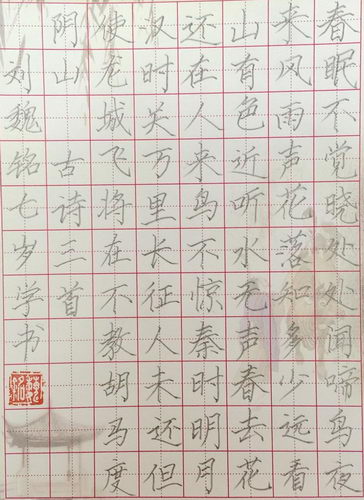 春眠不觉晓处处闻啼鸟夜
来风雨声花落知多少远看
山有色近听水无声春去花
还在人来鸟不惊秦时明月
汉时关万里长征人未还但
使龙城飞将在不教胡马度
阴山 古诗三首
刘魏铭七岁学书